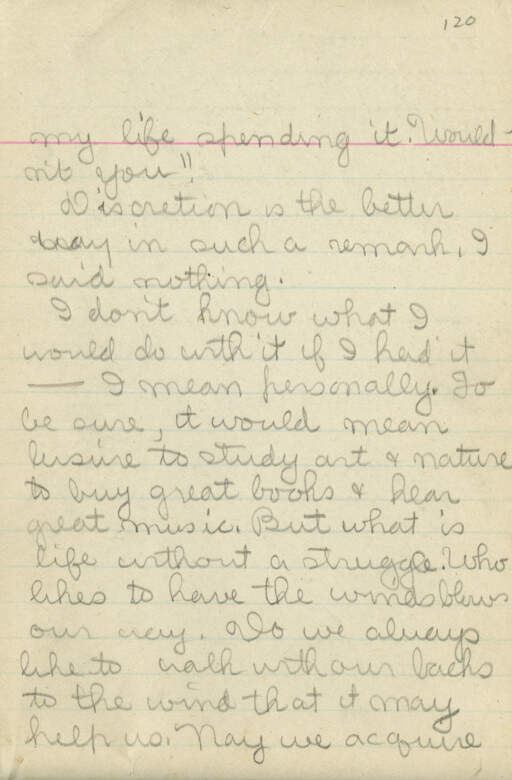 120
my life spending it. Would-
n't you"!
Discretion is the better
way in such a remark, I
said nothing.
I don't know what I
would do with it if I had it
— I mean personally. To
be sure, it would mean
lusure to study art & nature
to buy great books & hear
great music. But what is
life without a struggle. Who
likes to have the winds blows
our way. Do we always
like to walk with our backs
to the wind that it may
help us. Nay we acquire